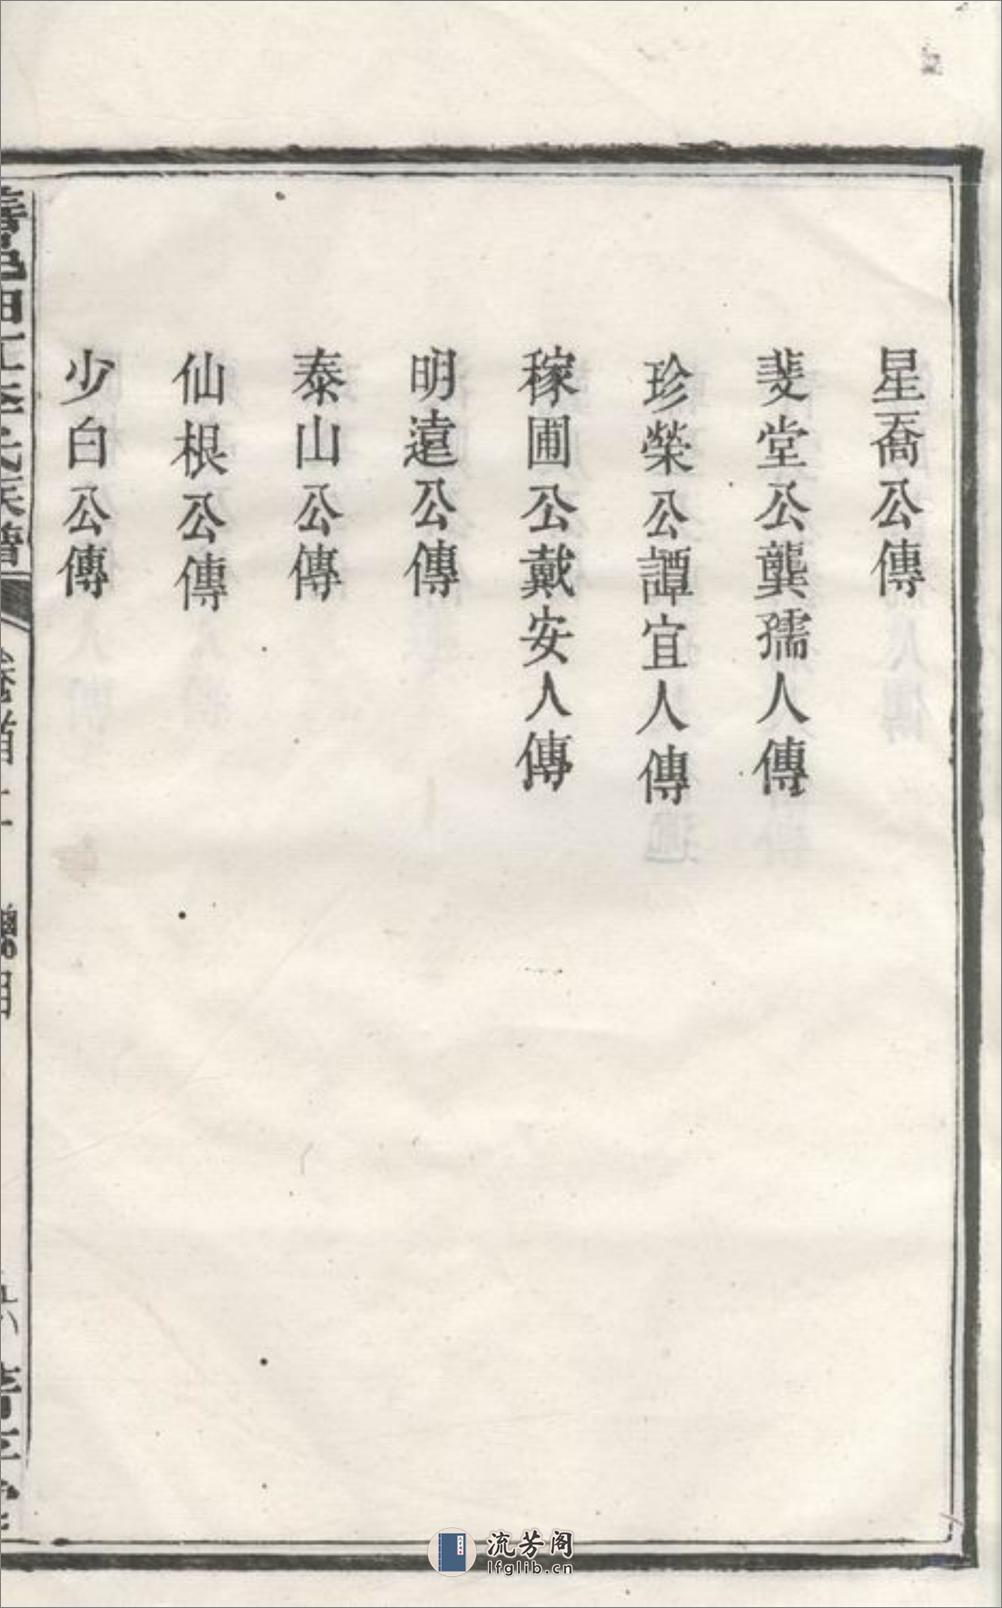 星喬公傳
斐堂公龔孺人傳
珍榮公譚宜人傳
稼圃公戴安人傳
明遠公傳
泰山公傳
仙根公傳
少白公傳
李氏族譜
卷首上 總目
流芳阁
lfglib.cn